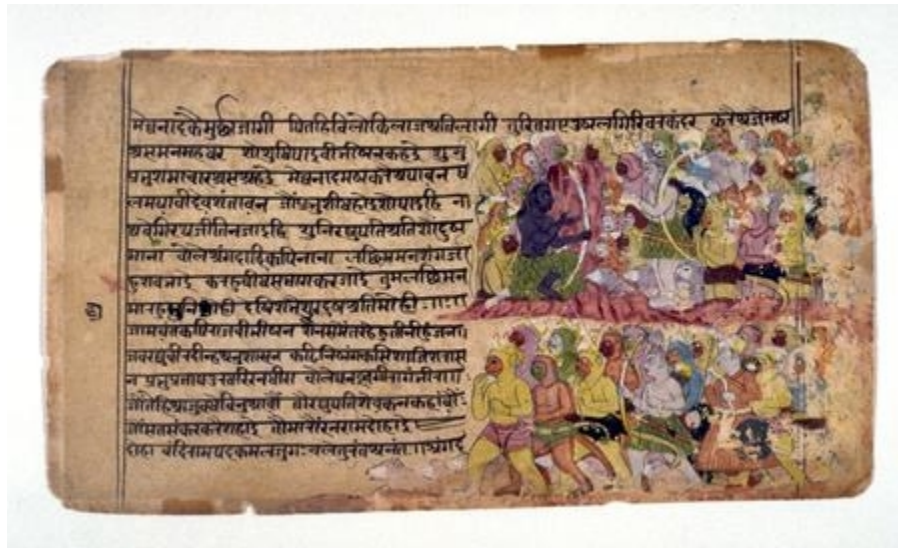 मेघनादकैमुर्छाजागी पितहिविलोकिलाजअतिलागी तुरितगएउषलगिरिवरकंदर करैअजैमष
असमनमहधर सोसुधिपाइवीभीषनकहई सुनु
प्रभुसमाचारअसअहई मेघनादमषकरैअपावन ष
लमयावीदेवसतावन जौंप्रभुसीधहोइसोपाइहि ना
थवेगिरिपुजीतिनजाइहि सुनिरघुपतिअतिसैसुष
माना वोलेअंगदादिकपिनाना लछिमनसंगजा
हुसवभाइ करजाइ तुमलछिमन
मारहु देषिसभैसुरदुषअतिमोही ॥
जामवंतकपिराजवीभीषन सेनसमेतरहहुतीनीहुजना।
जवरघुवीरदीन्हअनुसासन कटिनिषंगकसिसाजिसरास
न प्रभुप्रतापउरधरिरनधीरा वोलेघनइवगिरागंभीरा॥
जौतेहिआजुवधेविनुआवौं तौरघुपतिसेवकनकहावौं
जौंसतसंकरकरेसहाइ तौमारौंरनरामदोहाइ
दोहा वंदिरामपदकमलजुग चलेतुरंतअनंत ॥अंगद